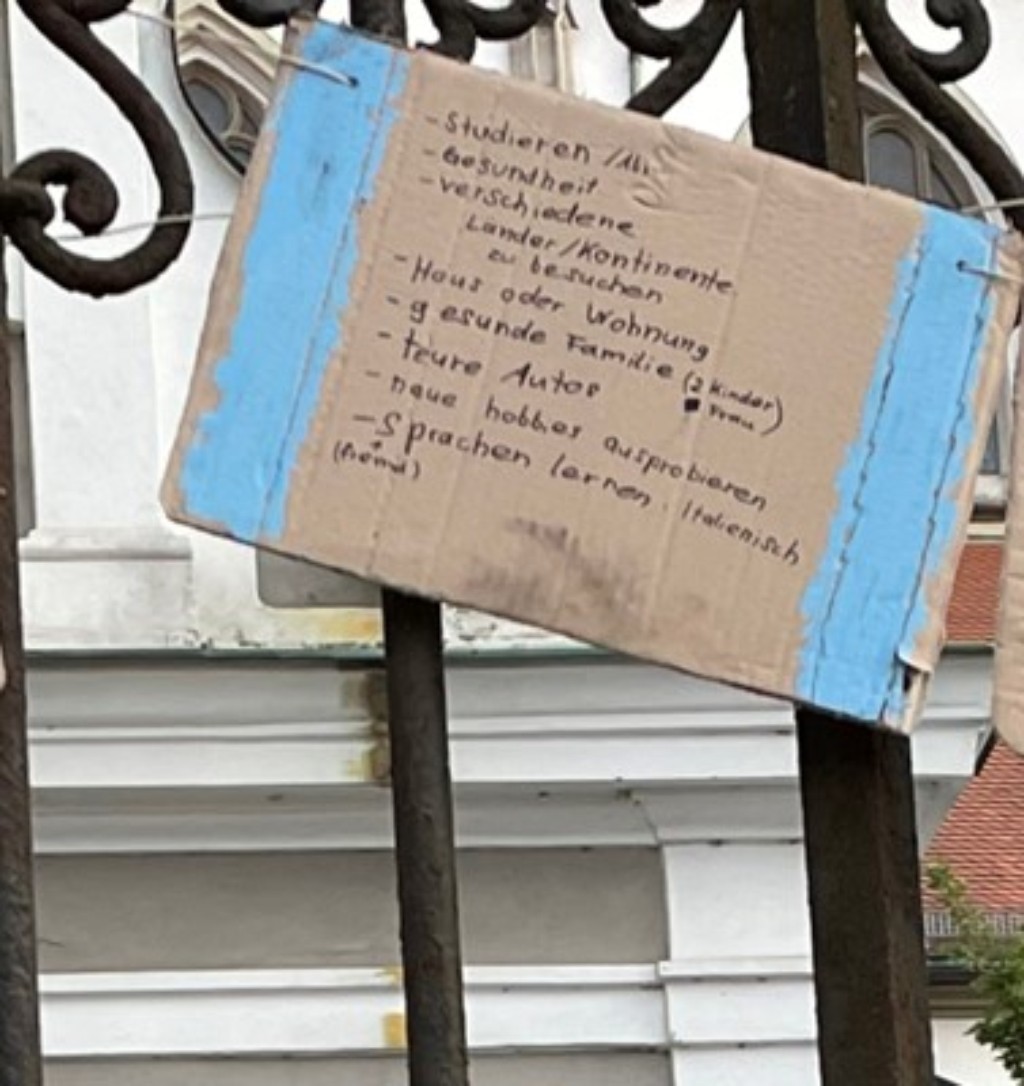 - Studieren / Abi
- Gesundheit
- verschiedene
Länder / Kontinente
zu besuchen
- Haus oder Wohnung
- gesunde Familie (2 Kinder)
Frau)
- teure Autos
- neue hobbies ausprobieren
- Sprachen lernen, Italienisch
(fremd)